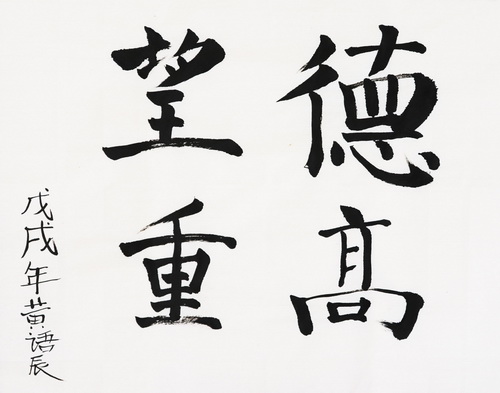 德高
望重
戊戌年黄语辰